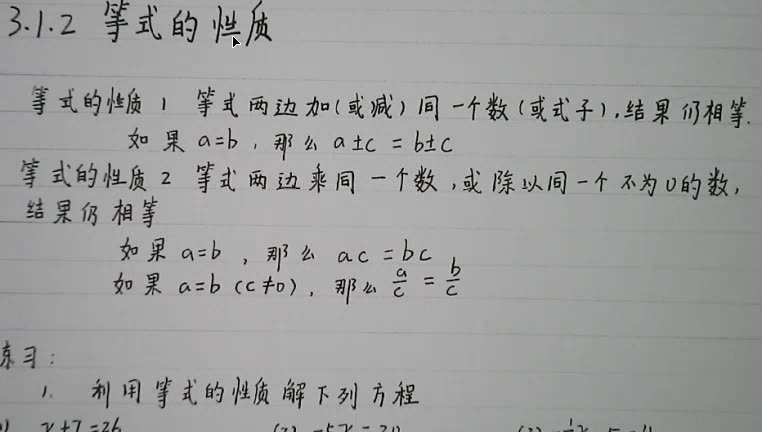 3.1.2 等式的性质
等式的性质1 等式两边加(或减)同一个数(或式子),结果仍相等.
如果 a=b,那么 a±c = b±c
等式的性质2 等式两边乘同一个数,或除以同一个不为0的数,
结果仍相等
如果 a=b,那么 ac = bc
如果 a=b (c≠0),那么 a/c = b/c
练习:
1. 利用等式的性质解下列方程
x+7=26